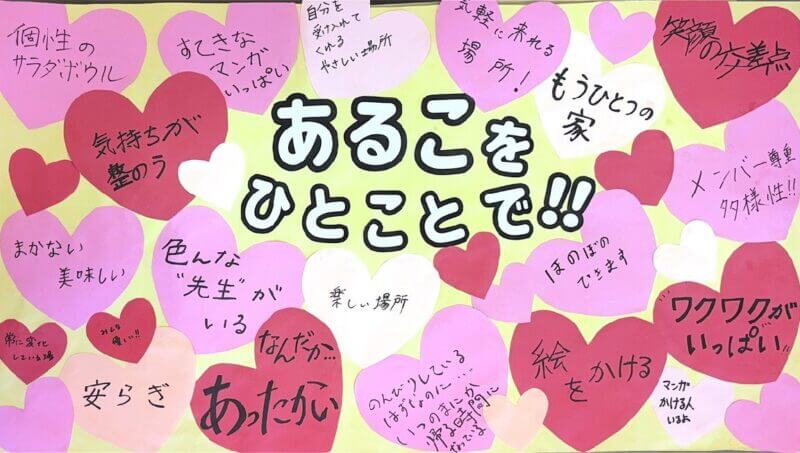 個性の
サラダボウル
すてきな
マンガ
いっぱい
自分を
受け入れて
くれる
やさしい場所
気軽に来れる
場所!
笑顔の交差点
もうひとつの
家
気持ちが
整のう
あるこを
ひとことで!!
メンバー尊重
多様性!!
まかない
美味しい
色んな
"先生"が
いる
楽しい場所
ほのぼの
できます
"ワクワクが
いっぱい"
常に変化
している場
みんな
優しい!!
安らぎ
なんだか…
あったかい
のんびりしている
はずなのに…
いつのまにか
帰る時間に
なっている
絵
をかける
マンガ
かける人
いるよ